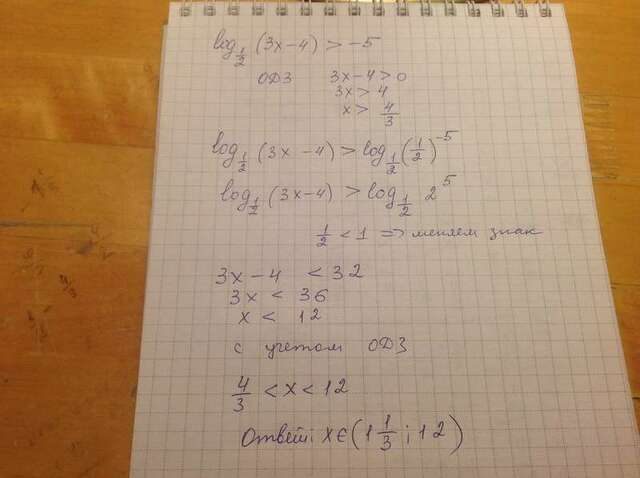 log_{1/2} (3x-4) > -5
ОДЗ 3x-4>0
3x > 4
x > 4/3
log_{1/2} (3x-4) > log_{1/2} (1/2)^{-5}
log_{1/2} (3x-4) > log_{1/2} 2^5
1/2 < 1 => меняем знак
3x-4 < 32
3x < 36
x < 12
с учетом ОДЗ
4/3 < x < 12
Ответ: x∈(1 1/3; 12)